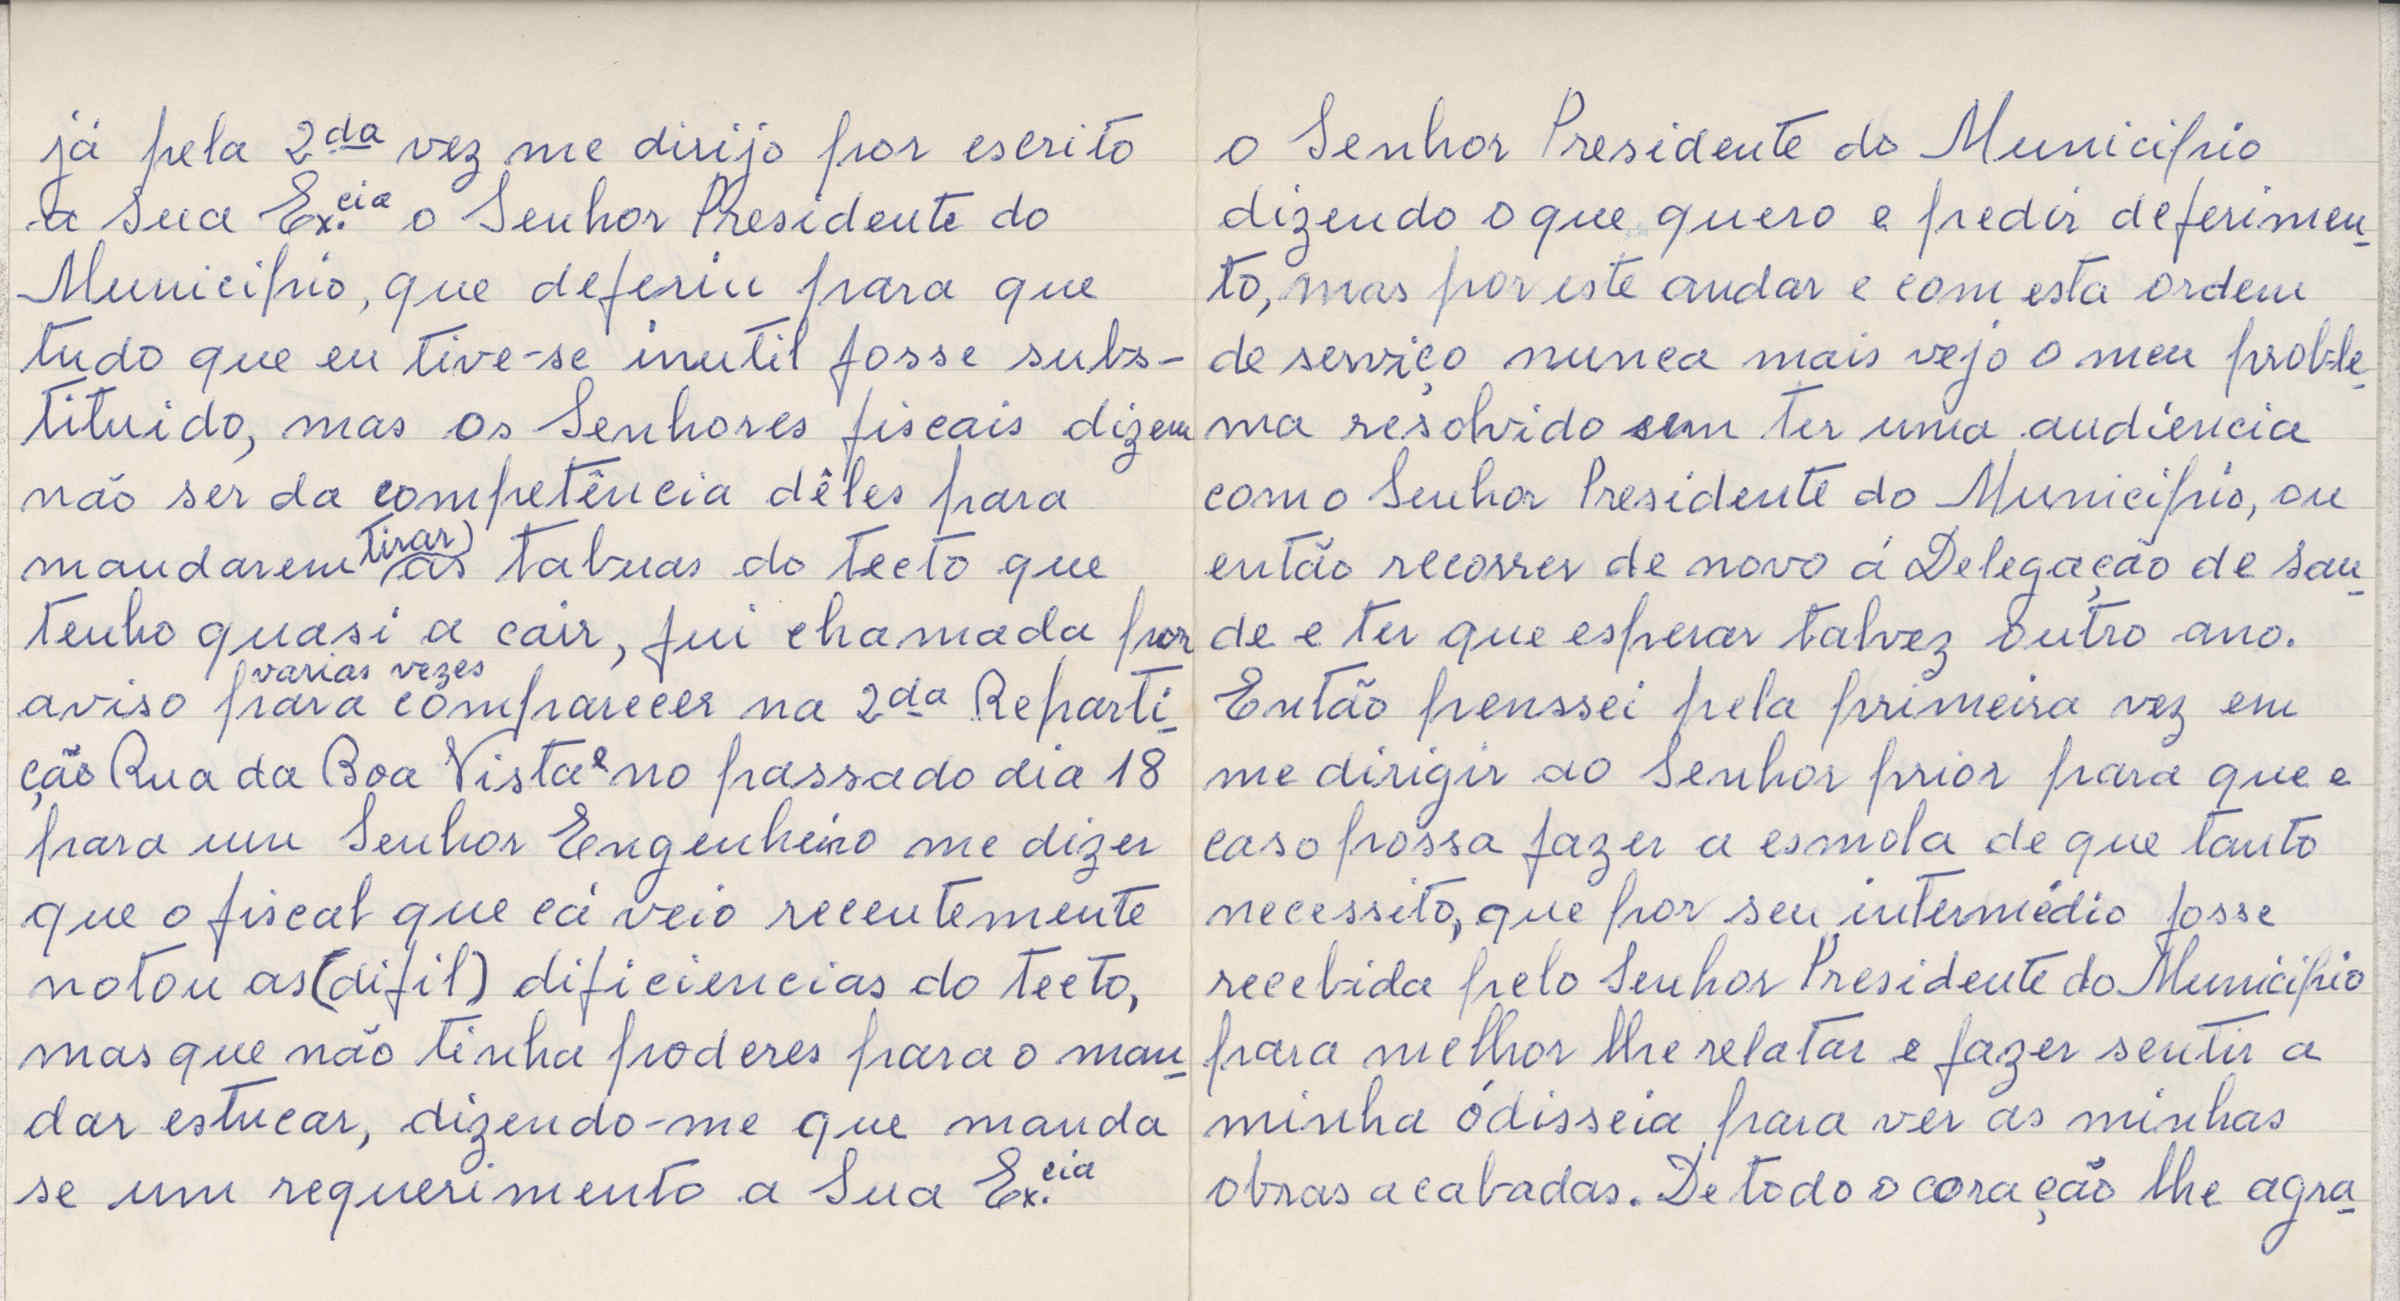 já pela 2da vez me dirijo por escrito
a Sua Ex.cia o Senhor Presidente do
Municipio, que deferiu para que
tudo que eu tive-se inutil fosse subs-
tituido, mas os Senhores fiscais dizem
não ser da competência dêles para
mandarem tirar as tabuas do tecto que
tenho quasi a cair, fui chamada por
aviso varias vezes para comparecer na 2da Reparti-
ção Rua da Boa Vista e no passado dia 18
para um Senhor Engenheiro me dizer
que o fiscal que cá veio recentemente
notou as (difil) dificiencias do tecto,
mas que não tinha poderes para o man-
dar estucar, dizendo-me que manda
se um requerimento a Sua Ex.cia
o Senhor Presidente do Municipio
dizendo o que quero e pedir deferimen-
to, mas por este andar e com esta ordem
de serviço nunca mais vejo o meu proble-
ma resolvido sem ter uma audiencia
com o Senhor Presidente do Municipio, ou
então recorrer de novo á Delegação de Sau-
de e ter que esperar talvez outro ano.
Então penssei pela primeira vez em
me dirigir ao Senhor prior para que e
caso possa fazer a esmola de que tanto
necessito, que por seu intermédio fosse
recebida pelo Senhor Presidente do Municipio
para melhor lhe relatar e fazer sentir a
minha ódisseia para ver as minhas
obras acabadas. De todo o coração lhe agra-